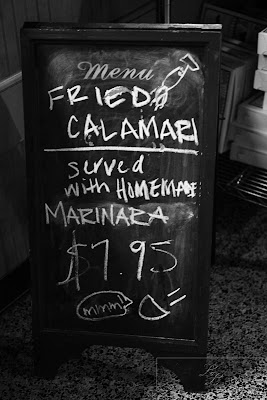 Menu
FRIED
CALAMARI
served
with HOMEMADE
MARINARA
$7.95
mmm!